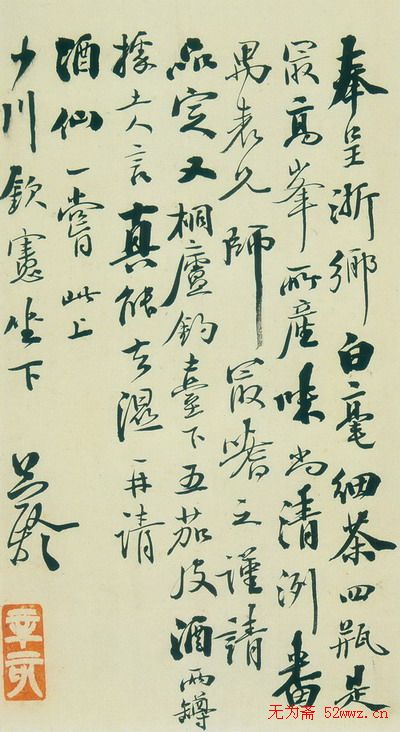 奉呈浙鄉白毫細茶四瓶是
最高峯所產味尚清冽番
禺表兄師最嗜之謹請
品定又桐廬釣臺下五茄皮酒兩罇
據土人言真能去濕再請
酒仙一嘗此上
少川欽憲坐下
无为斋 52wwz.cn